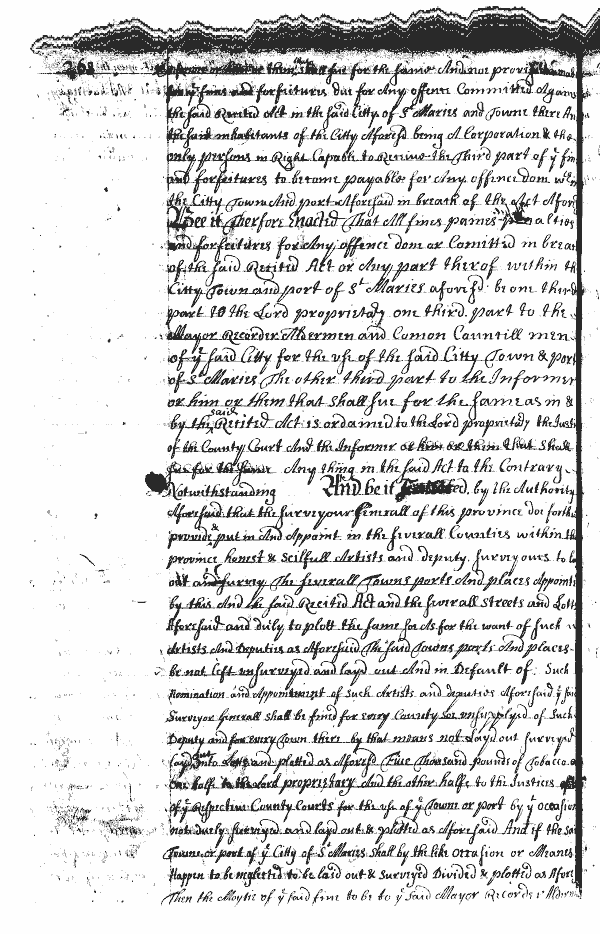 268
Informer or them that shall sue for the same And not provi
for ye fines and forfeitures due for Any offence Committed Agains
the said Recited Act in the said Citty of St Maries and Towne there An
the said inhabitants of the Citty Aforesd being A Corporation & the
only persons in Right Capable to Receive the Third part of ye fin
and forfeitures to become payable for Any offence don wthin
the Citty Town And port Aforesaid in breach of the Act Afore
Bee it Therfore Enacted That All fines paines penalties
and forfeitures for Any offence don or Comitted in breac
of the said Recited Act or Any part therof within th
Citty Town and port of St Maries aforesd be one third
part to the Lord proprietary one third part to the
Mayor Recorder Aldermen and Comon Councill men
of ye said Citty for the use of the said Citty Town & port
of St Maries The other third part to the Informer
or him or them that shall sue for the same as in &
by the said Recited Act is ordained to the Lord proprietary the Justi
of the County Court And the Informer or him or them that Shall
sue for the same Any thing in the said Act to the Contrary
Notwithstanding And be it Enacted, by the Authority
Aforesaid that the Surveyour Generall of this province doe forth
provide & put in And Appoint in the severall Counties within th
province honest & Scilfull Artists and deputy Surveyours to la
out and survey The severall Towns ports And places Appointe
by this And the said Recited Act and the severall streets and Lotts
Aforesaid and duly to plott the same for As for the want of such
Artists And Deputies as Aforesaid The said Towns ports And places
be not left unsurveyed and layd out And in Default of Such
Nomination and Appointment of Such Artists and deputies Aforesaid ye said
Surveyor Generall shall be fined for every County soe unsupplyed of Such
Deputy and for every Town there by that means not Layd out surveyed
layd out into Lotts and plotted as Aforesd Five Thousand pounds of Tobacco
One halfe to the Lord proprietary And the other halfe to the Justices
of ye Respective County Courts for the use of ye Town or port by ye occasion
not duely surveyed and layd out & plotted as Aforesaid And if the Sai
Towne or port of ye Citty of St Maries Shall by the like occasion or Meanes
Happen to be neglected to be laid out & Surveyed Divided & plotted as Afores
Then the Moytie of ye said fine to be to ye said Mayor Records Alderm